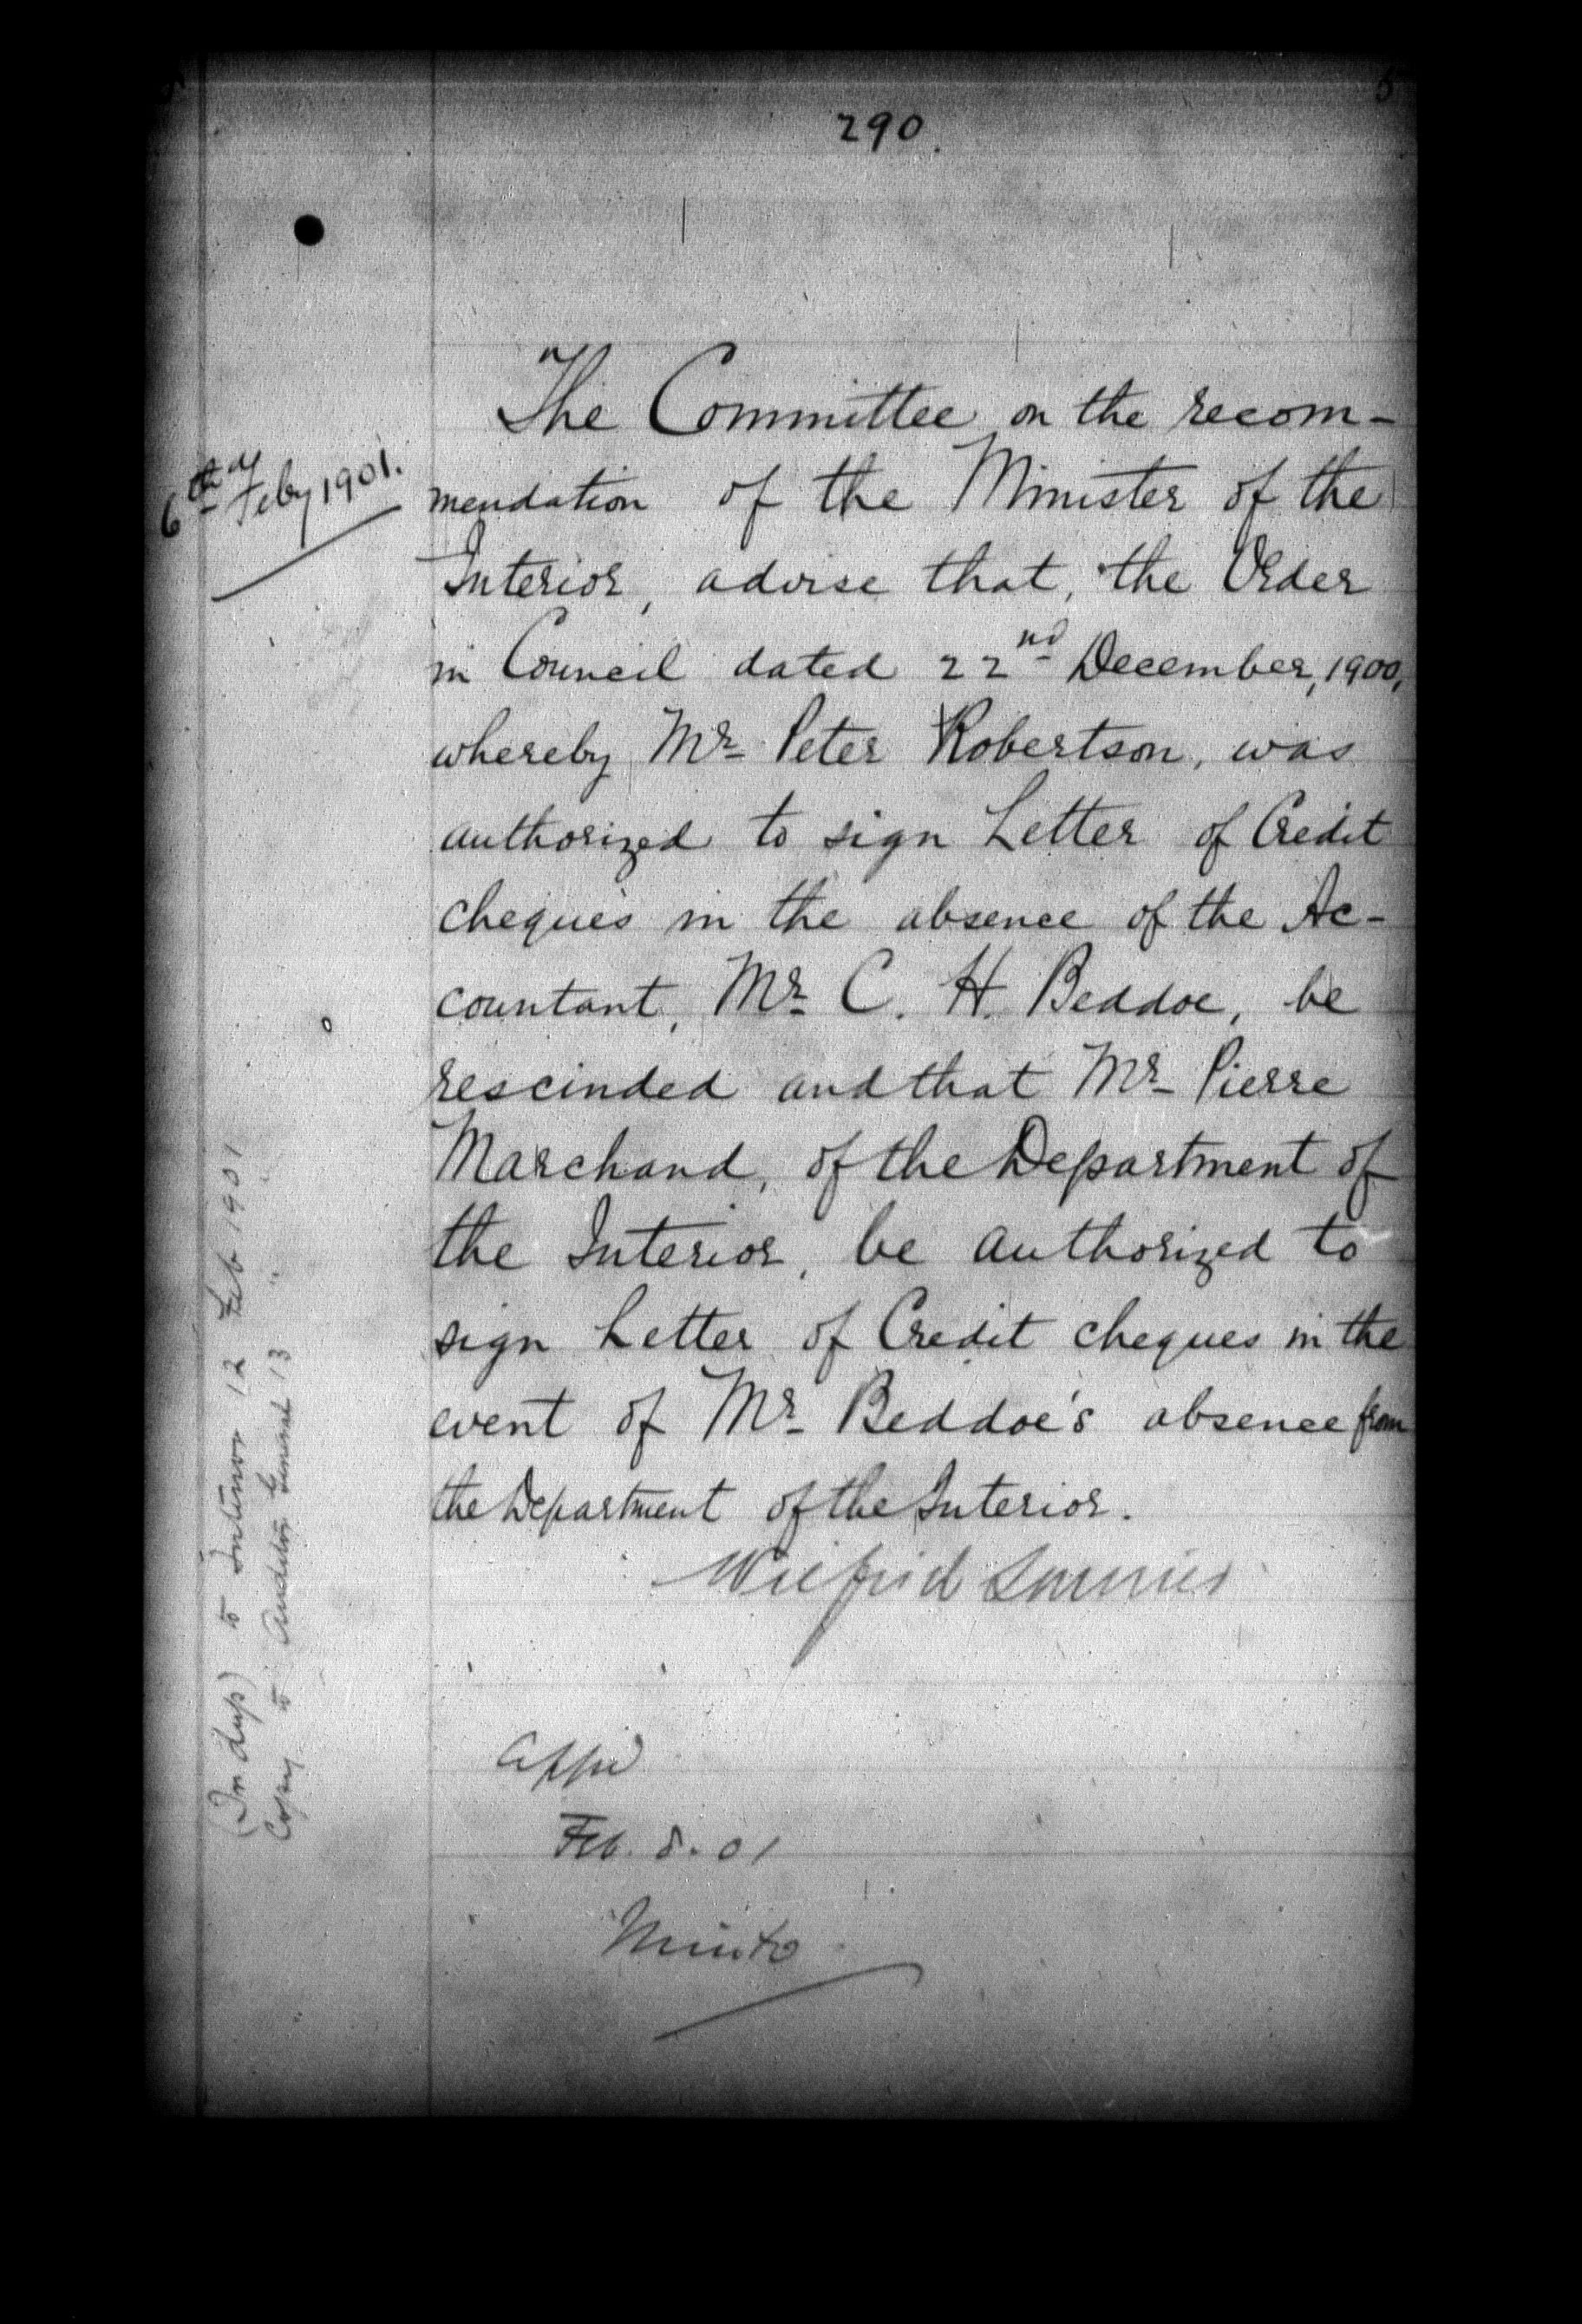 290.
6th Feby 1901.
The Committee on the recom-
mendation of the Minister of the
Interior, advise that, the Order
in Council dated 22nd December, 1900,
whereby Mr Peter Robertson, was
authorized to sign Letter of Credit
cheques in the absence of the Ac-
countant, Mr C. H. Beddoe, be
rescinded and that Mr Pierre
Marchand, of the Department of
the Interior, be authorized to
sign Letter of Credit cheques in the
event of Mr Beddoe's absence from
the Department of the Interior.
Wilfrid Laurier
Appd
Feb. 8. 01
Minto
(In dup) to Interior 12 Feb 1901
Copy to Auditor General 13 " "